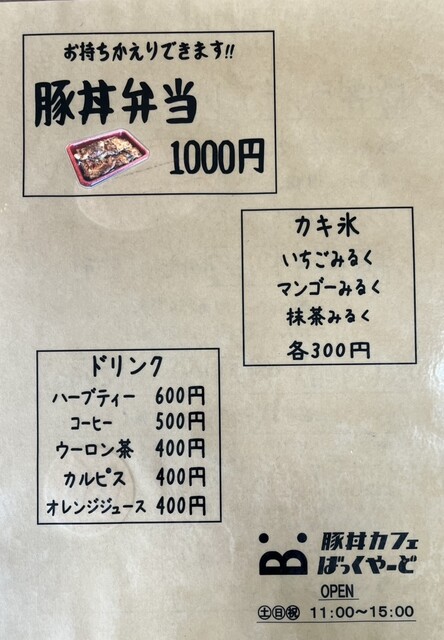 お持ちかえりできます!!
豚丼弁当
1000円
カキ氷
いちごみるく
マンゴーみるく
抹茶みるく
各300円
ドリンク
ハーブティー 600円
コーヒー 500円
ウーロン茶 400円
カルピス 400円
オレンジジュース 400円
B:
豚丼カフェ
ばっくやーど
OPEN
㊏㊐㊗ 11:00~15:00